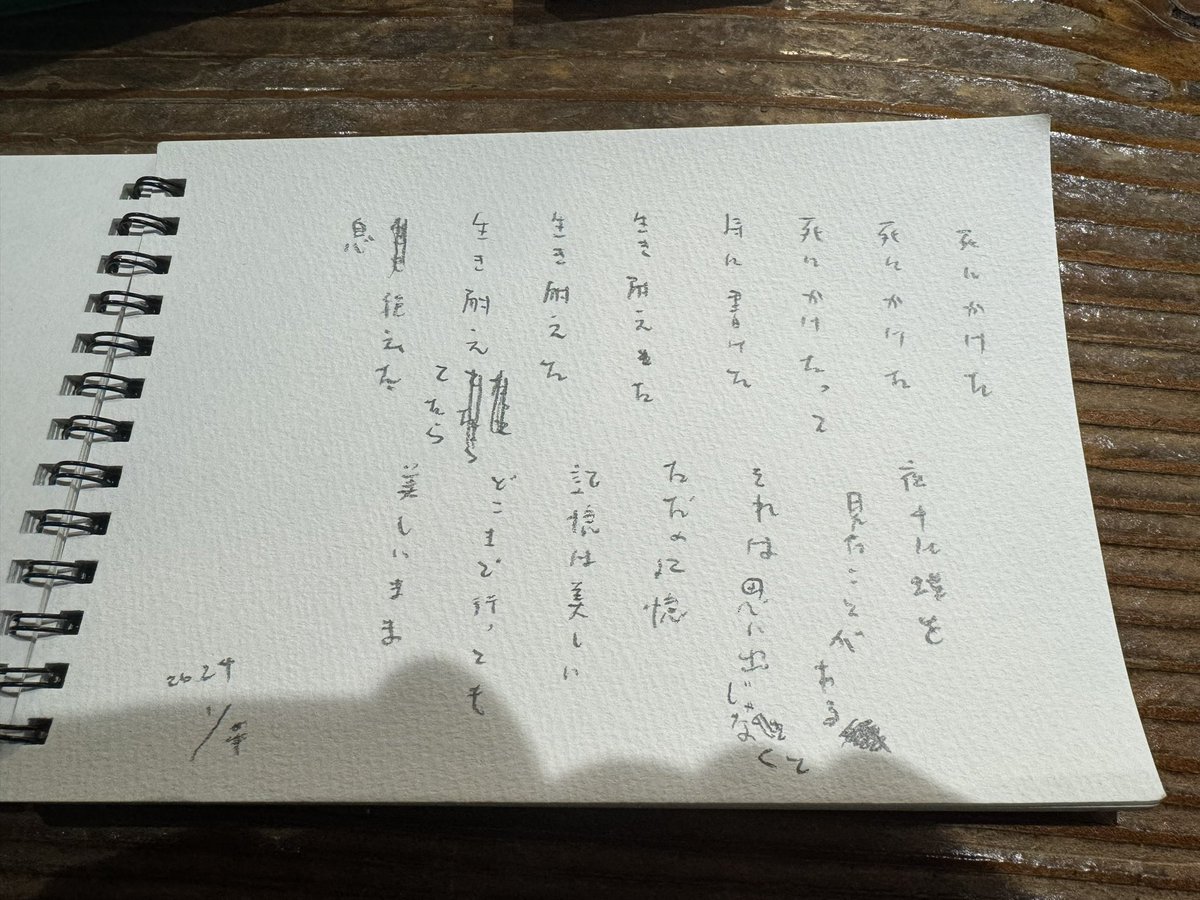 死にかけた
死にかけた
死にかけたって
に書けた
生き耐えた
生き耐えた
生き耐えてたら
息絶えた
夜 に を
見たことがある
それは思い出じゃなくて
ただの記憶
記憶は美しい
どこまで行っても
美しいまま
2024
1/